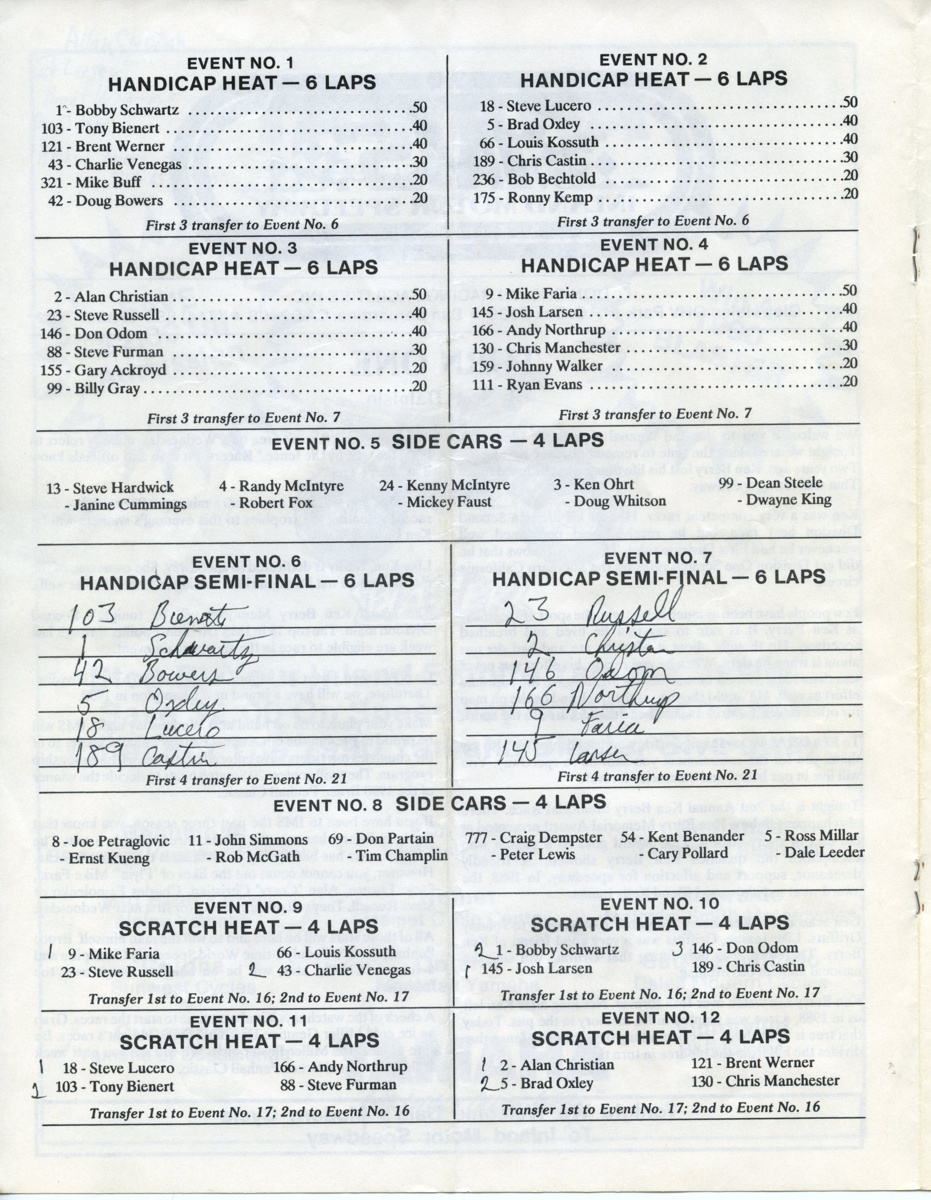 EVENT NO. 1
HANDICAP HEAT — 6 LAPS
1 - Bobby Schwartz .50
103 - Tony Bienert .40
121 - Brent Werner .40
43 - Charlie Venegas .30
321 - Mike Buff .20
42 - Doug Bowers .20
First 3 transfer to Event No. 6
EVENT NO. 2
HANDICAP HEAT — 6 LAPS
18 - Steve Lucero .50
5 - Brad Oxley .40
66 - Louis Kossuth .40
189 - Chris Castin .30
236 - Bob Bechtold .20
175 - Ronny Kemp .20
First 3 transfer to Event No. 6
EVENT NO. 3
HANDICAP HEAT — 6 LAPS
2 - Alan Christian .50
23 - Steve Russell .40
146 - Don Odom .40
88 - Steve Furman .30
155 - Gary Ackroyd .20
99 - Billy Gray .20
First 3 transfer to Event No. 7
EVENT NO. 4
HANDICAP HEAT — 6 LAPS
9 - Mike Faria .50
145 - Josh Larsen .40
166 - Andy Northrup .40
130 - Chris Manchester .30
159 - Johnny Walker .20
111 - Ryan Evans .20
First 3 transfer to Event No. 7
EVENT NO. 5 SIDE CARS — 4 LAPS
13 - Steve Hardwick 4 - Randy McIntyre 24 - Kenny McIntyre 3 - Ken Ohrt 99 - Dean Steele
- Janine Cummings - Robert Fox - Mickey Faust - Doug Whitson - Dwayne King
EVENT NO. 6
HANDICAP SEMI-FINAL — 6 LAPS
103 Bienert
1 Schwartz
42 Bowers
5 Oxley
18 Lucero
189 Castin
First 4 transfer to Event No. 21
EVENT NO. 7
HANDICAP SEMI-FINAL — 6 LAPS
23 Russell
2 Christan
146 Odom
166 Northrup
9 Faria
145 Larsen
First 4 transfer to Event No. 21
EVENT NO. 8 SIDE CARS — 4 LAPS
8 - Joe Petraglovic 11 - John Simmons 69 - Don Partain 777 - Craig Dempster 54 - Kent Benander 5 - Ross Millar
- Ernst Kueng - Rob McGath - Tim Champlin - Peter Lewis - Cary Pollard - Dale Leeder
EVENT NO. 9
SCRATCH HEAT — 4 LAPS
1 9 - Mike Faria 66 - Louis Kossuth
23 - Steve Russell 2 43 - Charlie Venegas
Transfer 1st to Event No. 16; 2nd to Event No. 17
EVENT NO. 10
SCRATCH HEAT — 4 LAPS
2 1 - Bobby Schwartz 3 146 - Don Odom
1 145 - Josh Larsen 189 - Chris Castin
Transfer 1st to Event No. 16; 2nd to Event No. 17
EVENT NO. 11
SCRATCH HEAT — 4 LAPS
1 18 - Steve Lucero 166 - Andy Northrup
2 103 - Tony Bienert 88 - Steve Furman
Transfer 1st to Event No. 17; 2nd to Event No. 16
EVENT NO. 12
SCRATCH HEAT — 4 LAPS
1 2 - Alan Christian 121 - Brent Werner
2 5 - Brad Oxley 130 - Chris Manchester
Transfer 1st to Event No. 17; 2nd to Event No. 16